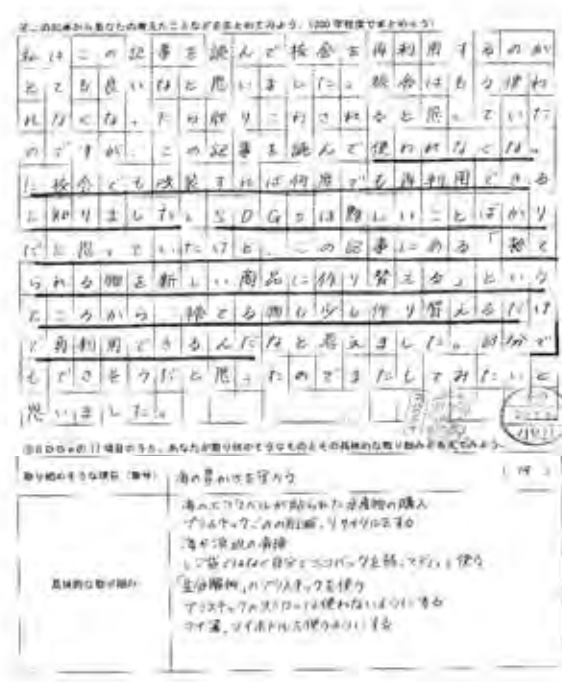 この記事からあなたの考えたことなどをまとめてみよう。(200字程度でまとめよう)
私はこの記事を読んで校舎を再利用するのが
とても良いなと思いました。校舎はもう使わ
れなくなったら取りこわされると思っていた
のですが、この記事を読んで使われなくなっ
た校舎でも改装すれば何度でも再利用できる
と知りました。SDGsは難しいことばかり
だと思っていたけど、この記事にある「捨て
られる物を新しい商品に作り替える」という
ところから、捨てる物も少し作り替えるだけ
で再利用できるんだなと考えました。自分で
もできそうだと思ったのでまたしてみたいと
思いました。
SDGsの17項目のうち、あなたが取り組めそうなものとその具体的な取り組みを考えてみよう。
取り組めそうな項目(番号) 海の豊かさを守ろう (14)
具体的な取り組み
海のエコラベルが貼られた水産物の購入
プラスチックごみの削減、リサイクルをする
海や浜辺の清掃
レジ袋ではなく自分でエコバックを持って 使う
「生分解性」のプラスチックを使う
プラスチックのストローは使わないようにする
マイ箸、マイボトルを使うようにする